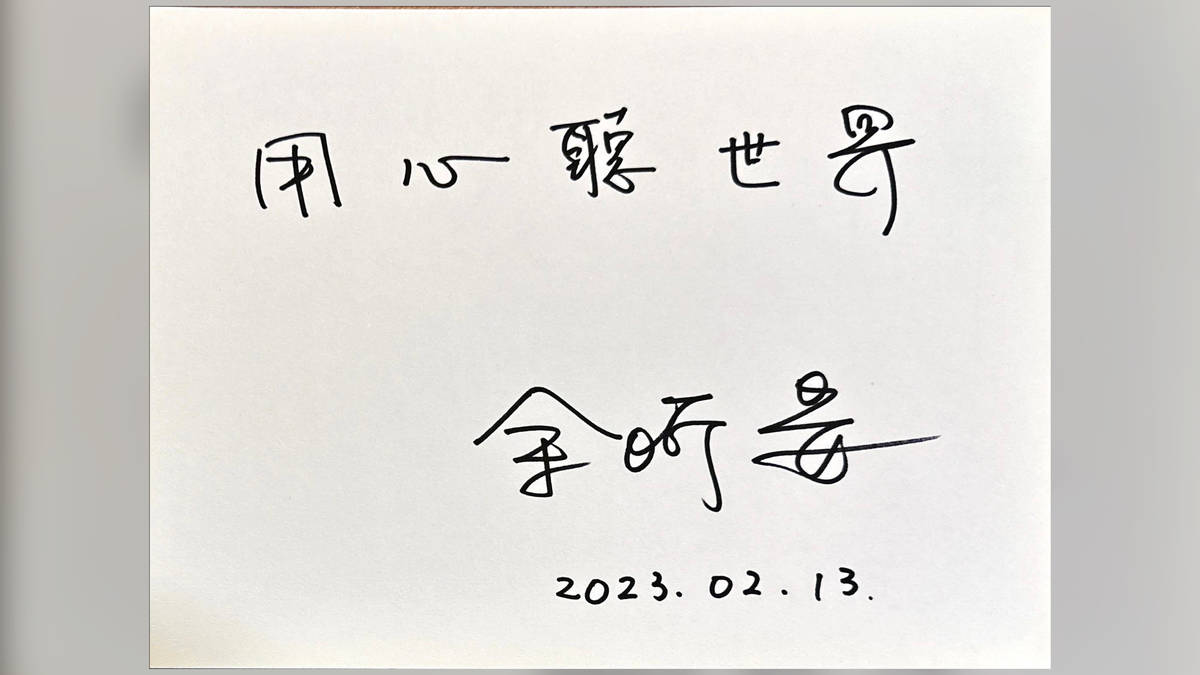 用心聽世界
2023.02.13.